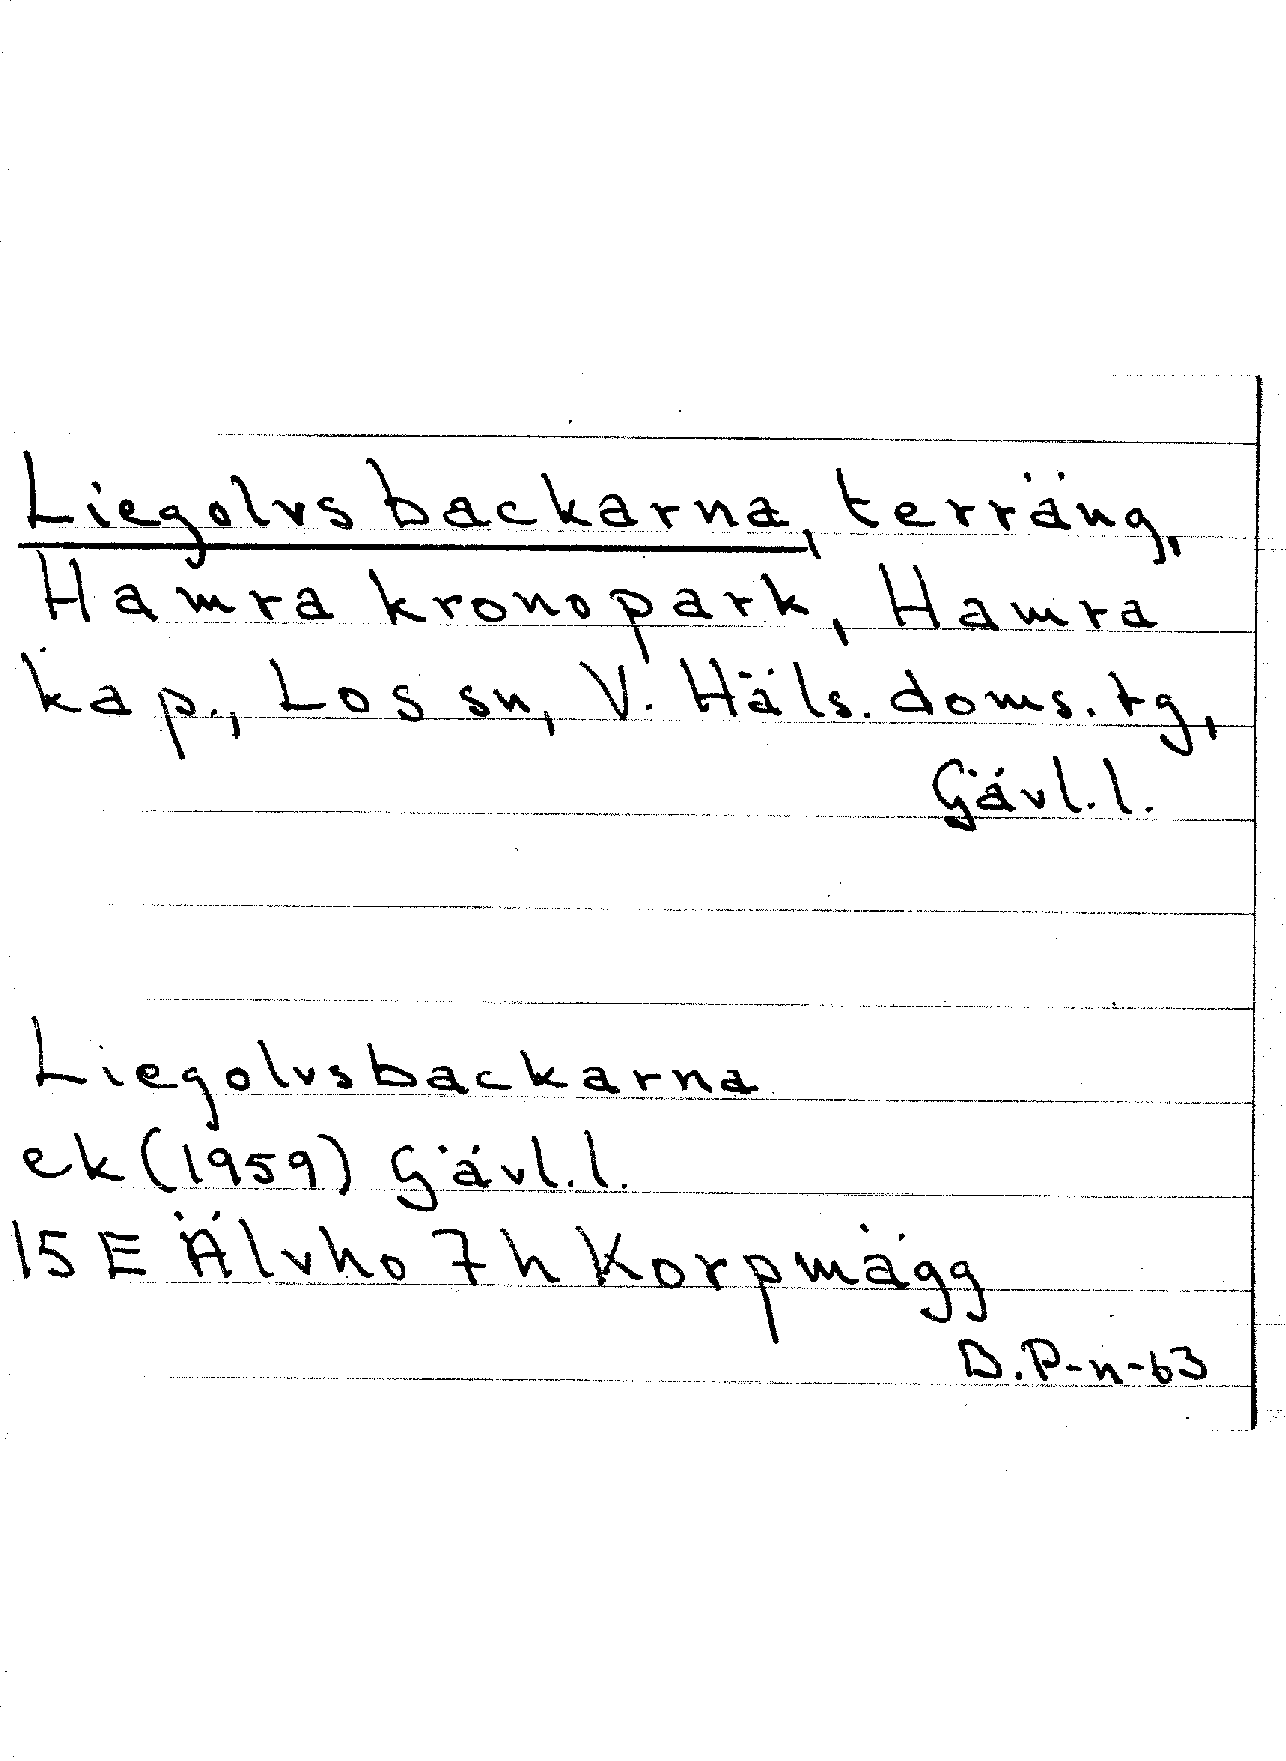 Liegolvsbackarna, terräng,
Hamra kronopark, Hamra
kap., Los sn, V. Häls. doms. tg,
Gävl. l.
Liegolvsbackarna
ek (1959) Gävl. l.
15 E Älvho 7 h Korpmägg
D. P-n-63